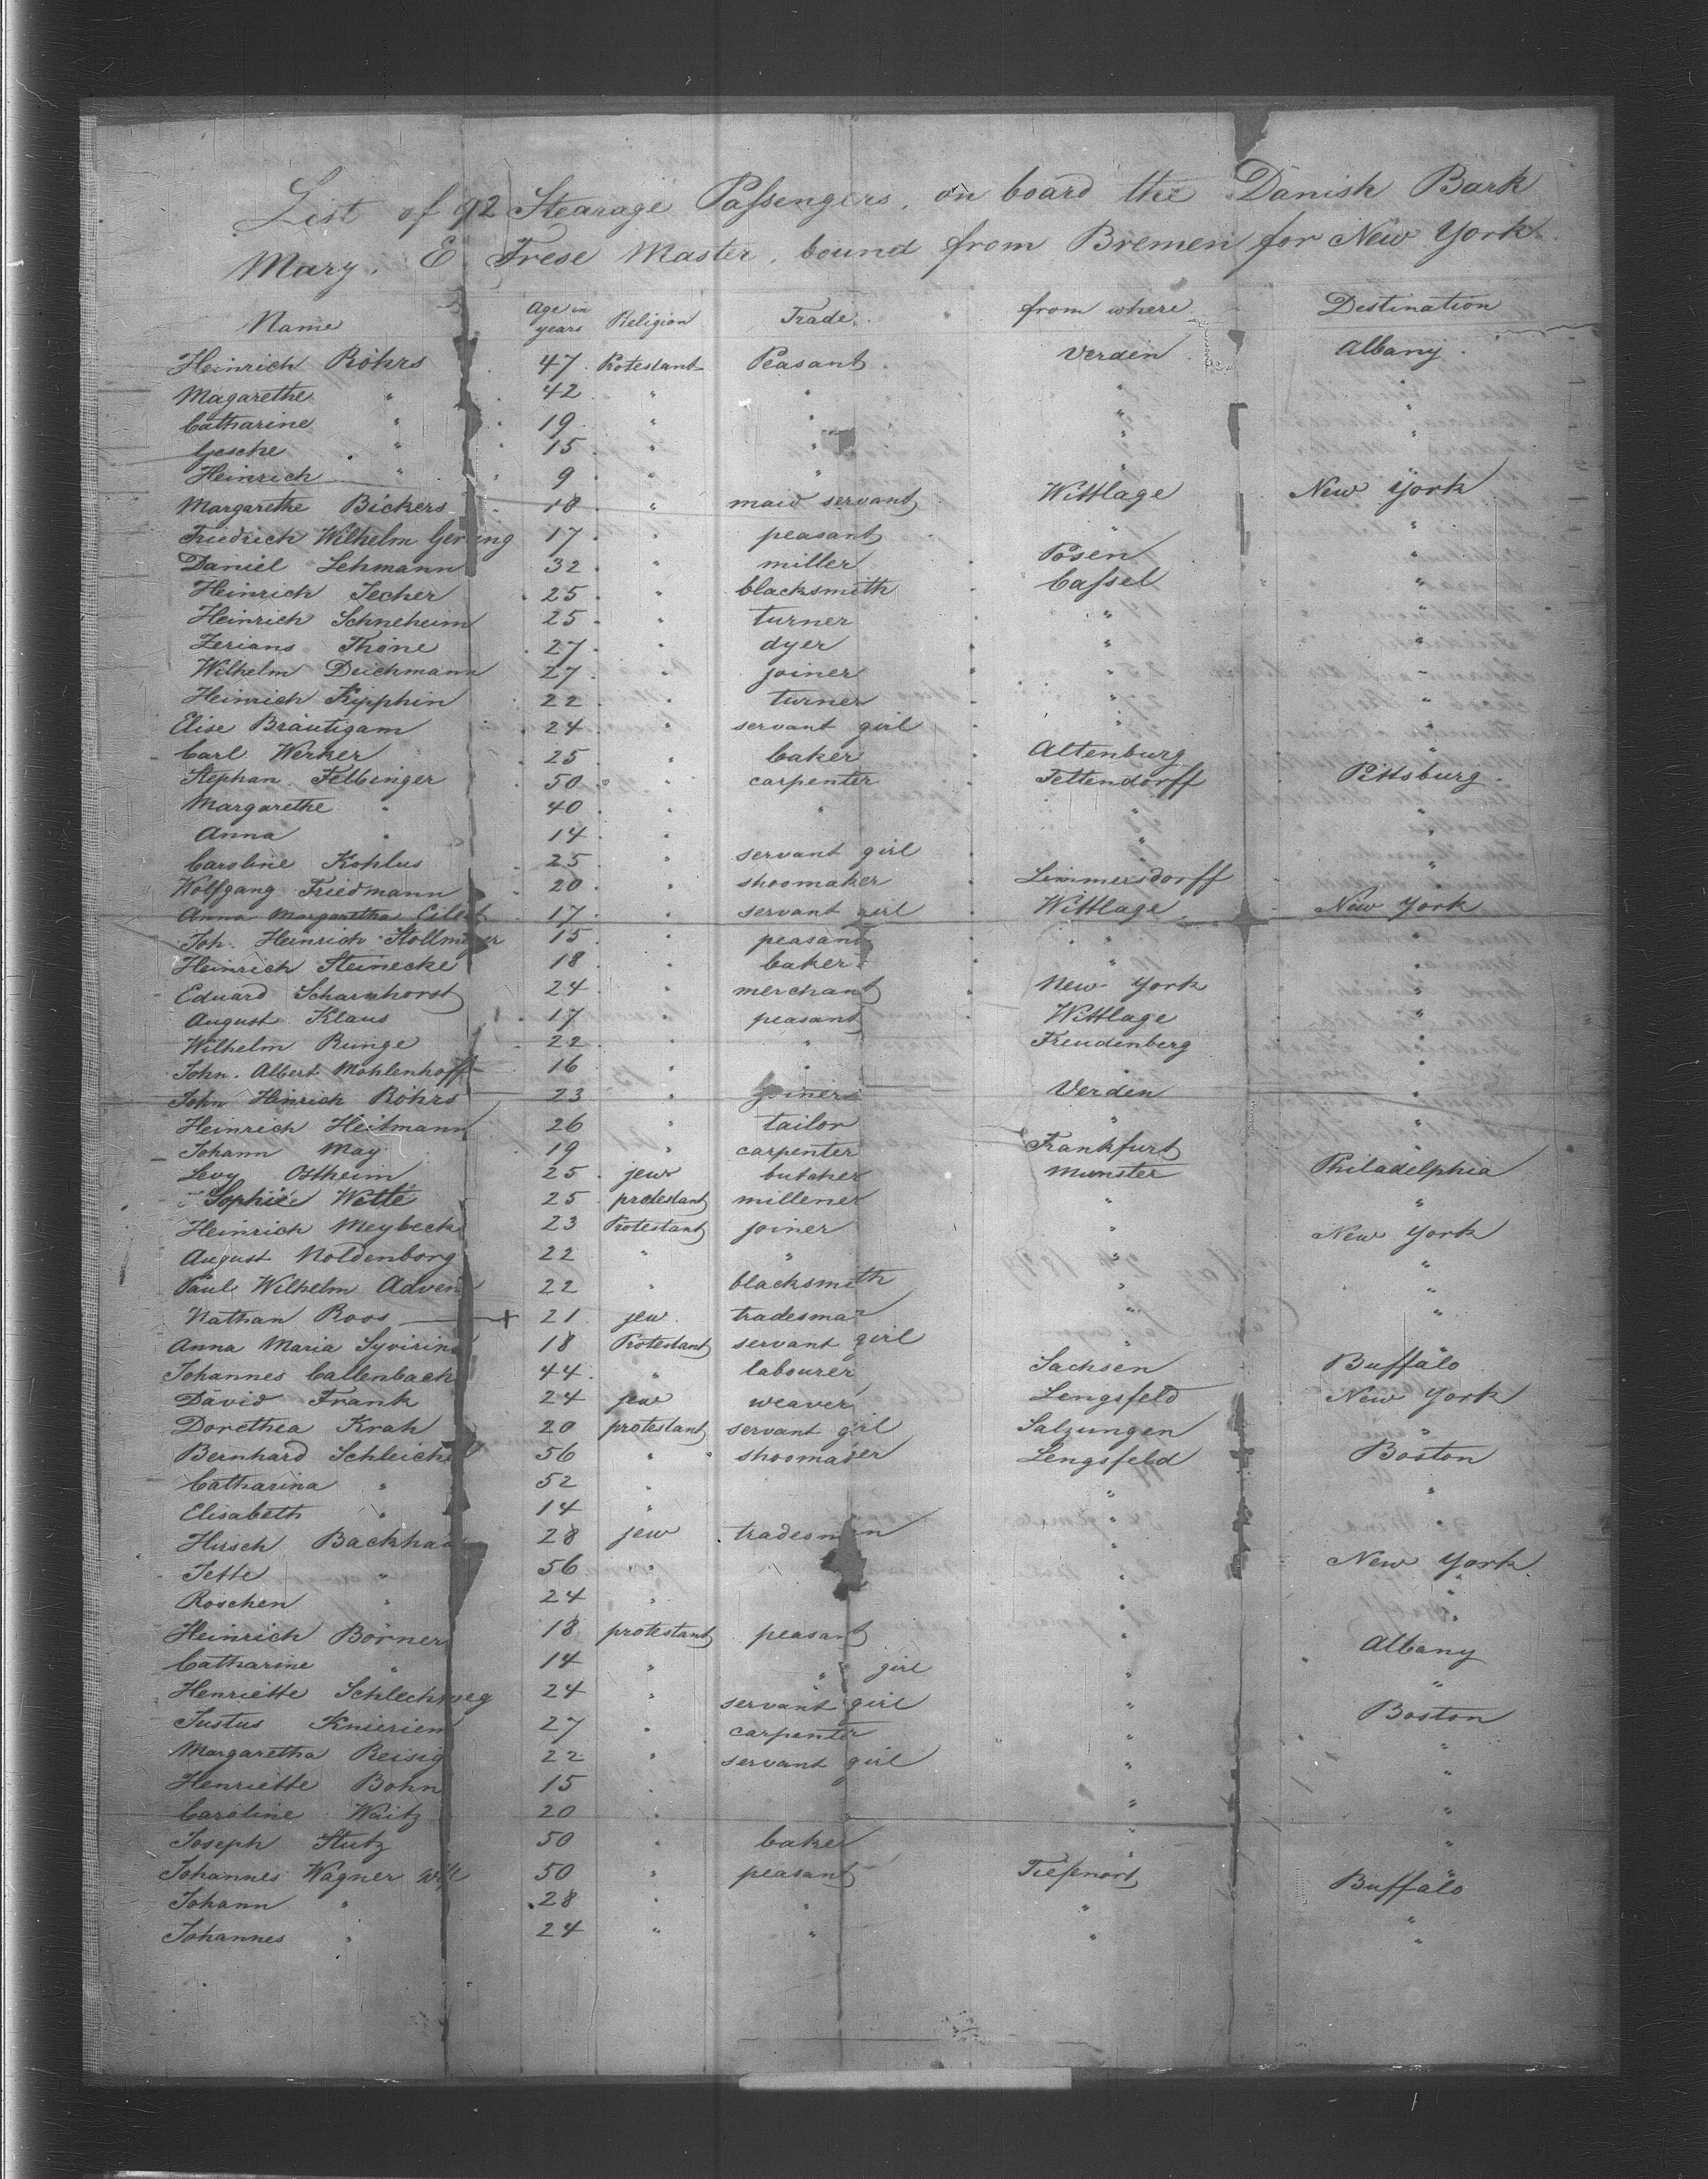 List of 92 Stearage Passengers, on board the Danish Bark
Mary. E Frese Master, bound from Bremen for New York.
Name Age in years Religion Trade. from where Destination
Heinrich Röhrs 47 Protestant Peasant Verden Albany.
Magarethe " 42 " " " "
Catharine " 19 " " " "
Gesche " 15 " " " "
Heinrich " 9 " " "
Margarethe Bickers 18 " maid servant Wittlage New York
Friedrich Wilhelm Gerling 17 " peasant " "
Daniel Lehmann 32 " miller Posen "
Heinrich Iecher 25 " blacksmith Cassel "
Heinrich Schneheim 25 " turner " "
Zerians Thöne 27 " dyer " "
Wilhelm Deichmann 27 " joiner " "
Heinrich Kipphin 22 " turner " "
Elise Bräutigam 24 " servant girl " "
Carl Werker 25 " baker Altenburg "
Stephan Felbinger 50 " carpenter Tettendorff Pittsburg.
Margarethe " 40 " " " "
Anna " 14 " " "
Caroline Kohlus 25 " servant girl " "
Wolfgang Friedmann 20 " shoomaker Limmersdorff
Anna Margaretha Eilert 17 " servant girl Wittlage New York
Joh. Heinrich Stollmeyer 15 " peasant " "
Heinrich Steinecke 18 " baker " "
Eduard Scharnhorst 24 " merchant New York "
August Klaus 17 " peasant Wittlage "
Wilhelm Runge 22 " " Freudenberg "
John. Albert Möhlenhoff 16 " " " "
John Hinrich Röhrs 23 " joiner Verden "
Heinrich Heitmann 26 " tailor " "
Johann May 19 carpenter Frankfurt "
Levy Ostheim 25 jew butcher Munster Philadelphia
Sophie Wette 25 protestant millener " "
Heinrich Meybeck 23 Protestant joiner " New York
August Noldenborg 22 " " " "
Paul Wilhelm Adven 22 " blacksmith " "
Nathan Roos + 21 jew. tradesman " "
Anna Maria Syvirin 18 Protestant servant girl "
Johannes Callenbach 44 " labourer Sachsen Buffalo
David Frank 24 jew weaver Lengsfeld New York
Dorethea Krah 20 protestant servant girl Salzungen "
Bernhard Schleich 56 " shoomaker Lengsfeld Boston
Catharina " 52 " " "
Elisabeth " 14 " " "
Hirsch Backhau 28 jew tradesman "
Jette " 56 " " New York.
Röschen " 24 " " "
Heinrich Börner 18 protestant peasant " Albany
Catharine " 14 " " girl " "
Henriette Schlechweg 24 " servant girl " Boston
Justus Knieriem 27 " carpenter " "
Margaretha Reisig 22 " servant girl " "
Henriette Bohn 15 " "
Caroline Waitz 20 " " " "
Joseph Stutz 50 " baker " "
Johannes Wagner 50 " peasant Tiefenort Buffalo
Johann " 28 " " " "
Johannes " 24 " " " "